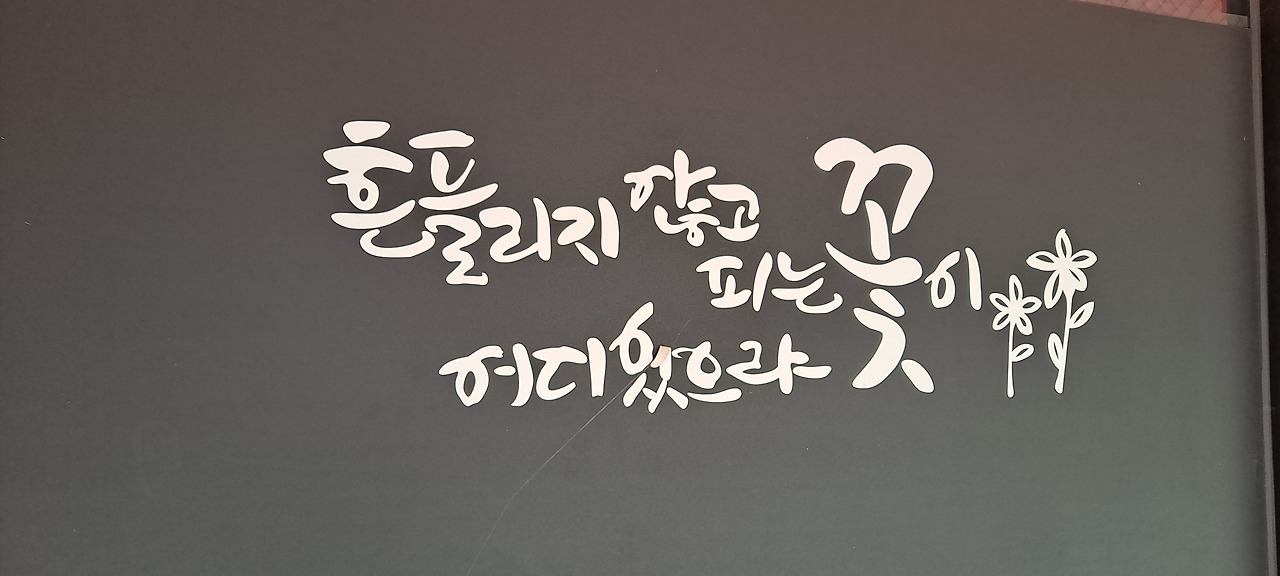 흔들리지 않고
피는 꽃이
어디 있으라